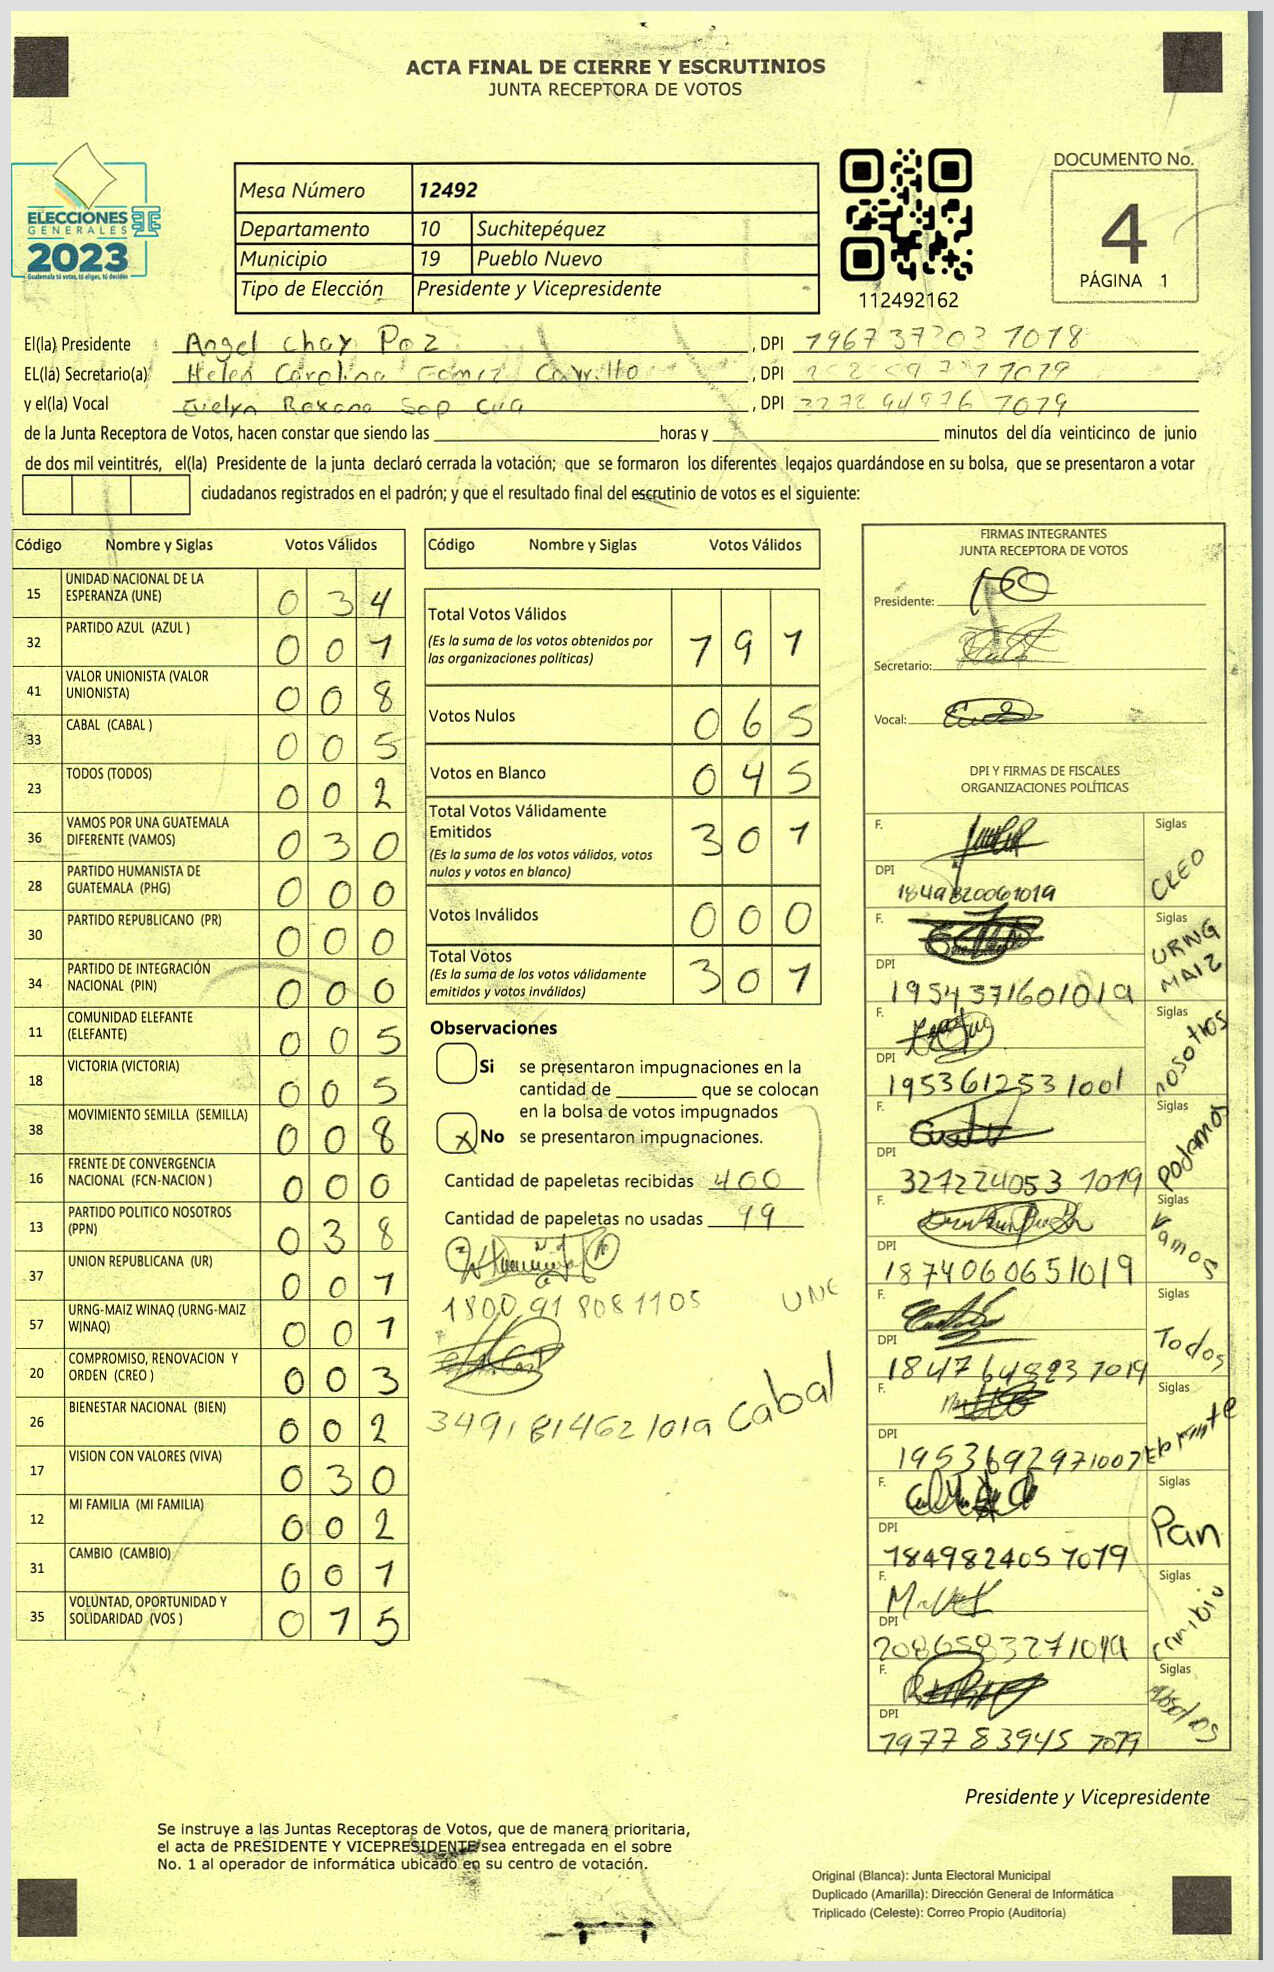 ACTA FINAL DE CIERRE Y ESCRUTINIOS
JUNTA RECEPTORA DE VOTOS
ELECCIONES
GENERALES
2023
Guatemala tú votas, tú eliges, tú decides
Mesa Número 12492
Departamento 10 Suchitepéquez
Municipio 19 Pueblo Nuevo
Tipo de Elección Presidente y Vicepresidente
112492162
DOCUMENTO No.
4
PÁGINA 1
El(la) Presidente Angel Chay Paz, DPI 1967 37203 1018
EL(la) Secretario(a) Helen Carolina Gómez Carrillo, DPI
y el(la) Vocal Evelyn Roxana Sop Cua, DPI 3272 94976 1019
de la Junta Receptora de Votos, hacen constar que siendo las horas y minutos del día veinticinco de junio
de dos mil veintitrés, el(la) Presidente de la junta declaró cerrada la votación; que se formaron los diferentes legajos guardándose en su bolsa, que se presentaron a votar
ciudadanos registrados en el padrón; y que el resultado final del escrutinio de votos es el siguiente:
Código Nombre y Siglas Votos Válidos
15 UNIDAD NACIONAL DE LA ESPERANZA (UNE) 0 3 4
32 PARTIDO AZUL (AZUL ) 0 0 1
41 VALOR UNIONISTA (VALOR UNIONISTA) 0 0 8
33 CABAL (CABAL ) 0 0 5
23 TODOS (TODOS) 0 0 2
36 VAMOS POR UNA GUATEMALA DIFERENTE (VAMOS) 0 3 0
28 PARTIDO HUMANISTA DE GUATEMALA (PHG) 0 0 0
30 PARTIDO REPUBLICANO (PR) 0 0 0
34 PARTIDO DE INTEGRACIÓN NACIONAL (PIN) 0 0 0
11 COMUNIDAD ELEFANTE (ELEFANTE) 0 0 5
18 VICTORIA (VICTORIA) 0 0 5
38 MOVIMIENTO SEMILLA (SEMILLA) 0 0 8
16 FRENTE DE CONVERGENCIA NACIONAL (FCN-NACION ) 0 0 0
13 PARTIDO POLITICO NOSOTROS (PPN) 0 3 8
37 UNION REPUBLICANA (UR) 0 0 1
57 URNG-MAIZ WINAQ (URNG-MAIZ WINAQ) 0 0 1
20 COMPROMISO, RENOVACION Y ORDEN (CREO ) 0 0 3
26 BIENESTAR NACIONAL (BIEN) 0 0 2
17 VISION CON VALORES (VIVA) 0 3 0
12 MI FAMILIA (MI FAMILIA) 0 0 2
31 CAMBIO (CAMBIO) 0 0 1
35 VOLUNTAD, OPORTUNIDAD Y SOLIDARIDAD (VOS ) 0 1 5
Código Nombre y Siglas Votos Válidos
Total Votos Válidos 1 9 1
(Es la suma de los votos obtenidos por
las organizaciones políticas)
Votos Nulos 0 6 5
Votos en Blanco 0 4 5
Total Votos Válidamente Emitidos 3 0 1
(Es la suma de los votos válidos, votos
nulos y votos en blanco)
Votos Inválidos 0 0 0
Total Votos 3 0 1
(Es la suma de los votos válidamente
emitidos y votos inválidos)
Observaciones
Si se presentaron impugnaciones en la
cantidad de que se colocan
en la bolsa de votos impugnados
x No se presentaron impugnaciones.
Cantidad de papeletas recibidas 400
Cantidad de papeletas no usadas 99
1800 91 808 1105 UNE
349181462 1019 Cabal
FIRMAS INTEGRANTES
JUNTA RECEPTORA DE VOTOS
Presidente:
Secretario:
Vocal:
DPI Y FIRMAS DE FISCALES
ORGANIZACIONES POLÍTICAS
F. Siglas CREO
DPI 1849820061019
F. Siglas URNG MAIZ
DPI 1954371601019
F. Siglas nosotros
DPI 1953612531001
F. Siglas Podemos
DPI 327224053 1019
F. Siglas Vamos
DPI 1874060651019
F. Siglas Todos
DPI 184764823 1019
F. Siglas
DPI 1953692971007
F. Siglas Pan
DPI 184982405 1019
F. Siglas Cambio
DPI 2086583271019
F. Siglas
DPI 1977 83945 1019
Presidente y Vicepresidente
Se instruye a las Juntas Receptoras de Votos, que de manera prioritaria,
el acta de PRESIDENTE Y VICEPRESIDENTE sea entregada en el sobre
No. 1 al operador de informática ubicado en su centro de votación.
Original (Blanca): Junta Electoral Municipal
Duplicado (Amarilla): Dirección General de Informática
Triplicado (Celeste): Correo Propio (Auditoría)